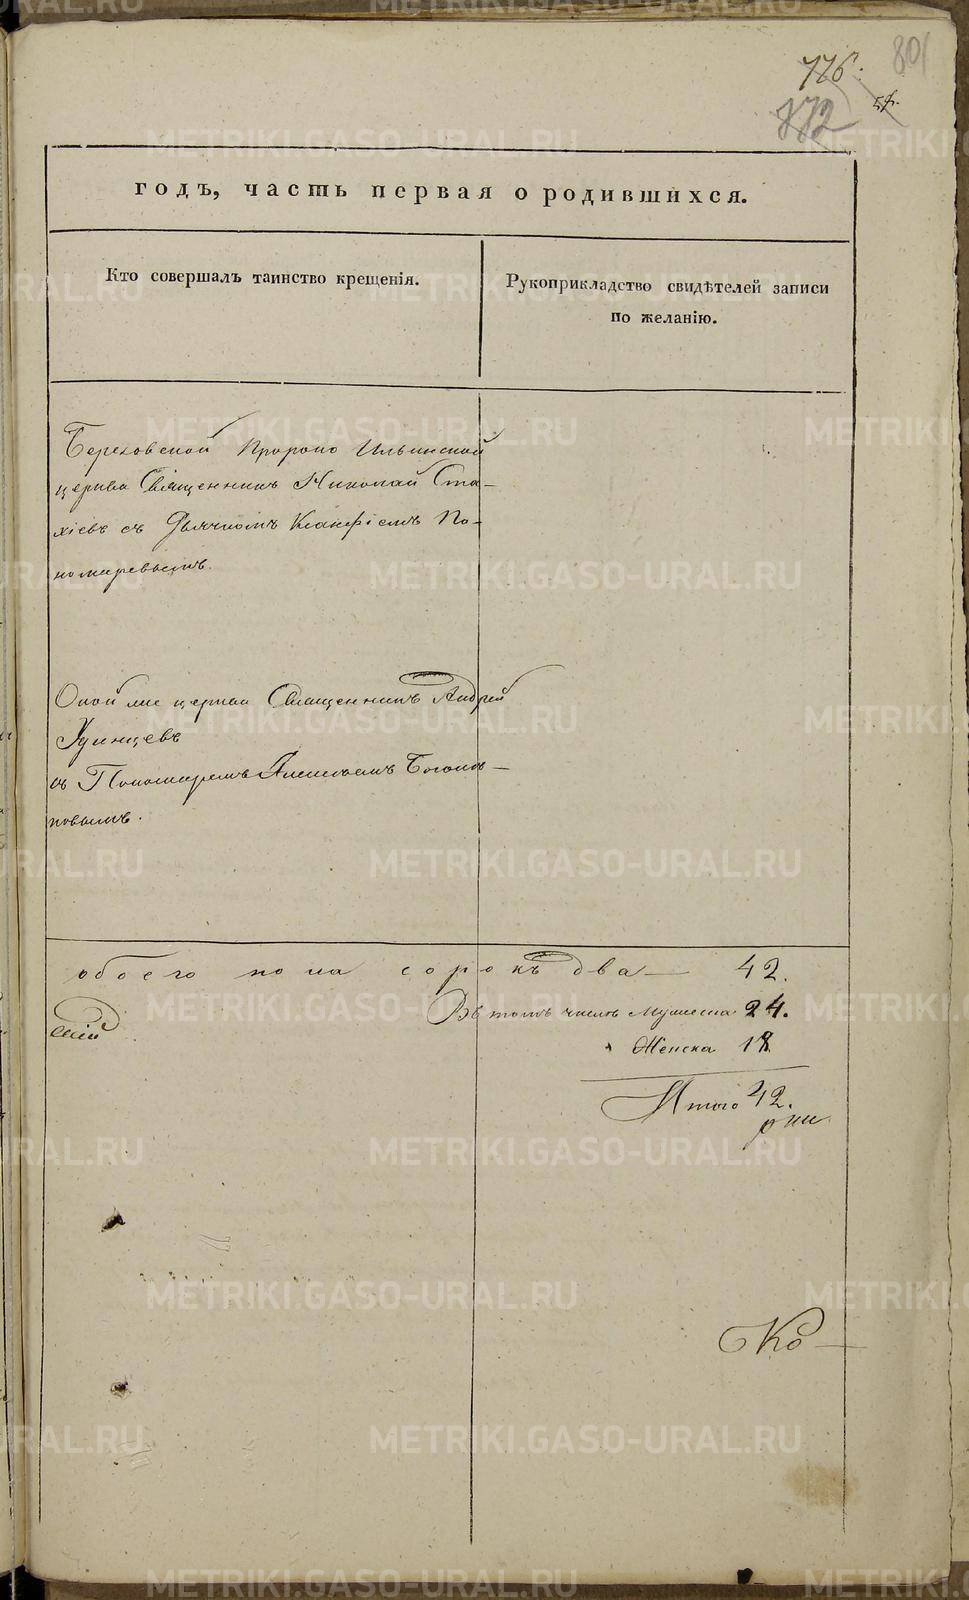 801
776.
772
годъ, часть первая о родившихся.
Кто совершалъ таинство крещенія.
Рукоприкладство свидѣтелей записи
по желанію.
Пророко Ильинской
церкви Священникъ Николай Ста-
хіевъ съ Дьячкомъ По-
номаревымъ.
Оной же церкви Священникъ Андрей
Удинцевъ
съ Пономаремъ Алексѣемъ
обоего пола сорокъ два — 42.
Въ томъ числѣ Мужеска 24.
Женска 18
Итого 42.
METRIKI.GASO-URAL.RU